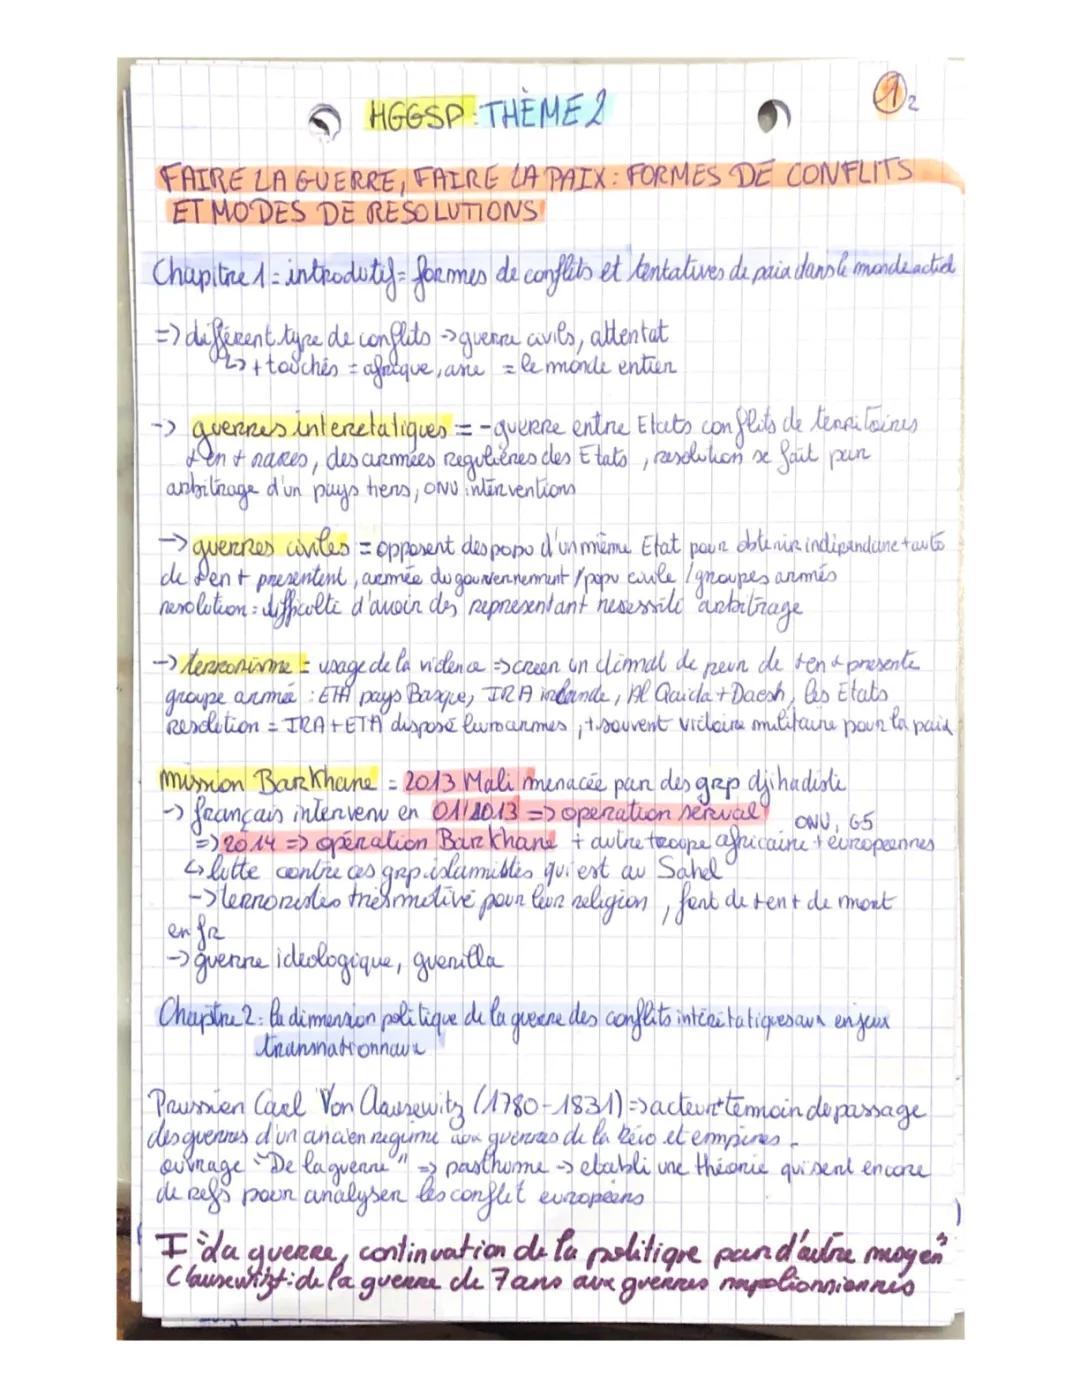 1 2
HGGSP : THÈME 2
FAIRE LA GUERRE, FAIRE LA PAIX : FORMES DE CONFLITS
ET MODES DE RESOLUTIONS
Chapitre 1 = introdutif = formes de conflits et tentatives de paix dans le monde actuel
=> différent type de conflits -> guerre civils, attentat
↳ + touchés = afrique, asie = le monde entier
-> guerres interetatiques = - guerre entre Etats conflits de territoires
de - en + rares, des armées regulières des Etats, resolution se fait par
arbitrage d'un pays tiers, ONU interventions
-> guerres civiles = opposent des popu d'un même Etat pour obtenir indépendance + auto
de + en + presentent, armée du gouvernement / popu civile / groupes armés
resolution = difficulté d'avoir des representant necessité arbitrage
-> terrorisme = usage de la violence => créer un climat de peur de + en + presente
groupe armée : ETA pays Basque, IRA irlande, Al Qaida + Daesh, les Etats
Resolution = IRA + ETA disposé leurs armes, + souvent victoire militaire pour la paix
mission Barkhane = 2013 Mali menacée par des grp djihadiste
-> français intervenu en 01/2013 => operation serval
ONU, G5
=> 2014 => opération Barkhane + autre troupe africaine + européennes
↳ lutte contre ces grp islamistes qui est au Sahel
-> terroristes très motivé pour leur religion, font de + en + de mort
en fr
-> guerre idéologique, guerilla
Chapitre 2 : la dimmension politique de la guerre des conflits intéretatiques aux enjeux
transnationnaux
Prussien Carl Von Clausewitz (1780-1831) => acteur + témoin de passage
des guerres d'un ancien regime aux guerres de la Révo et empires.
ouvrage "De la guerre" => posthume -> etabli une théorie qui sert encore
de refs pour analyser les conflit européens
I "La guerre, continuation de la politique par d'autre moyen"
Clausewitz : de la guerre de 7 ans aux guerres napoléonniennes